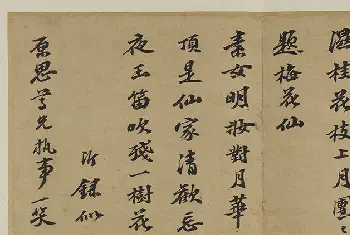 濕桂花枝上月團〻
題梅花仙
素女明妝對月華
頂是仙家清歡忘
夜玉笛吹殘一樹花
所錄似
原思尊兄執事一笑